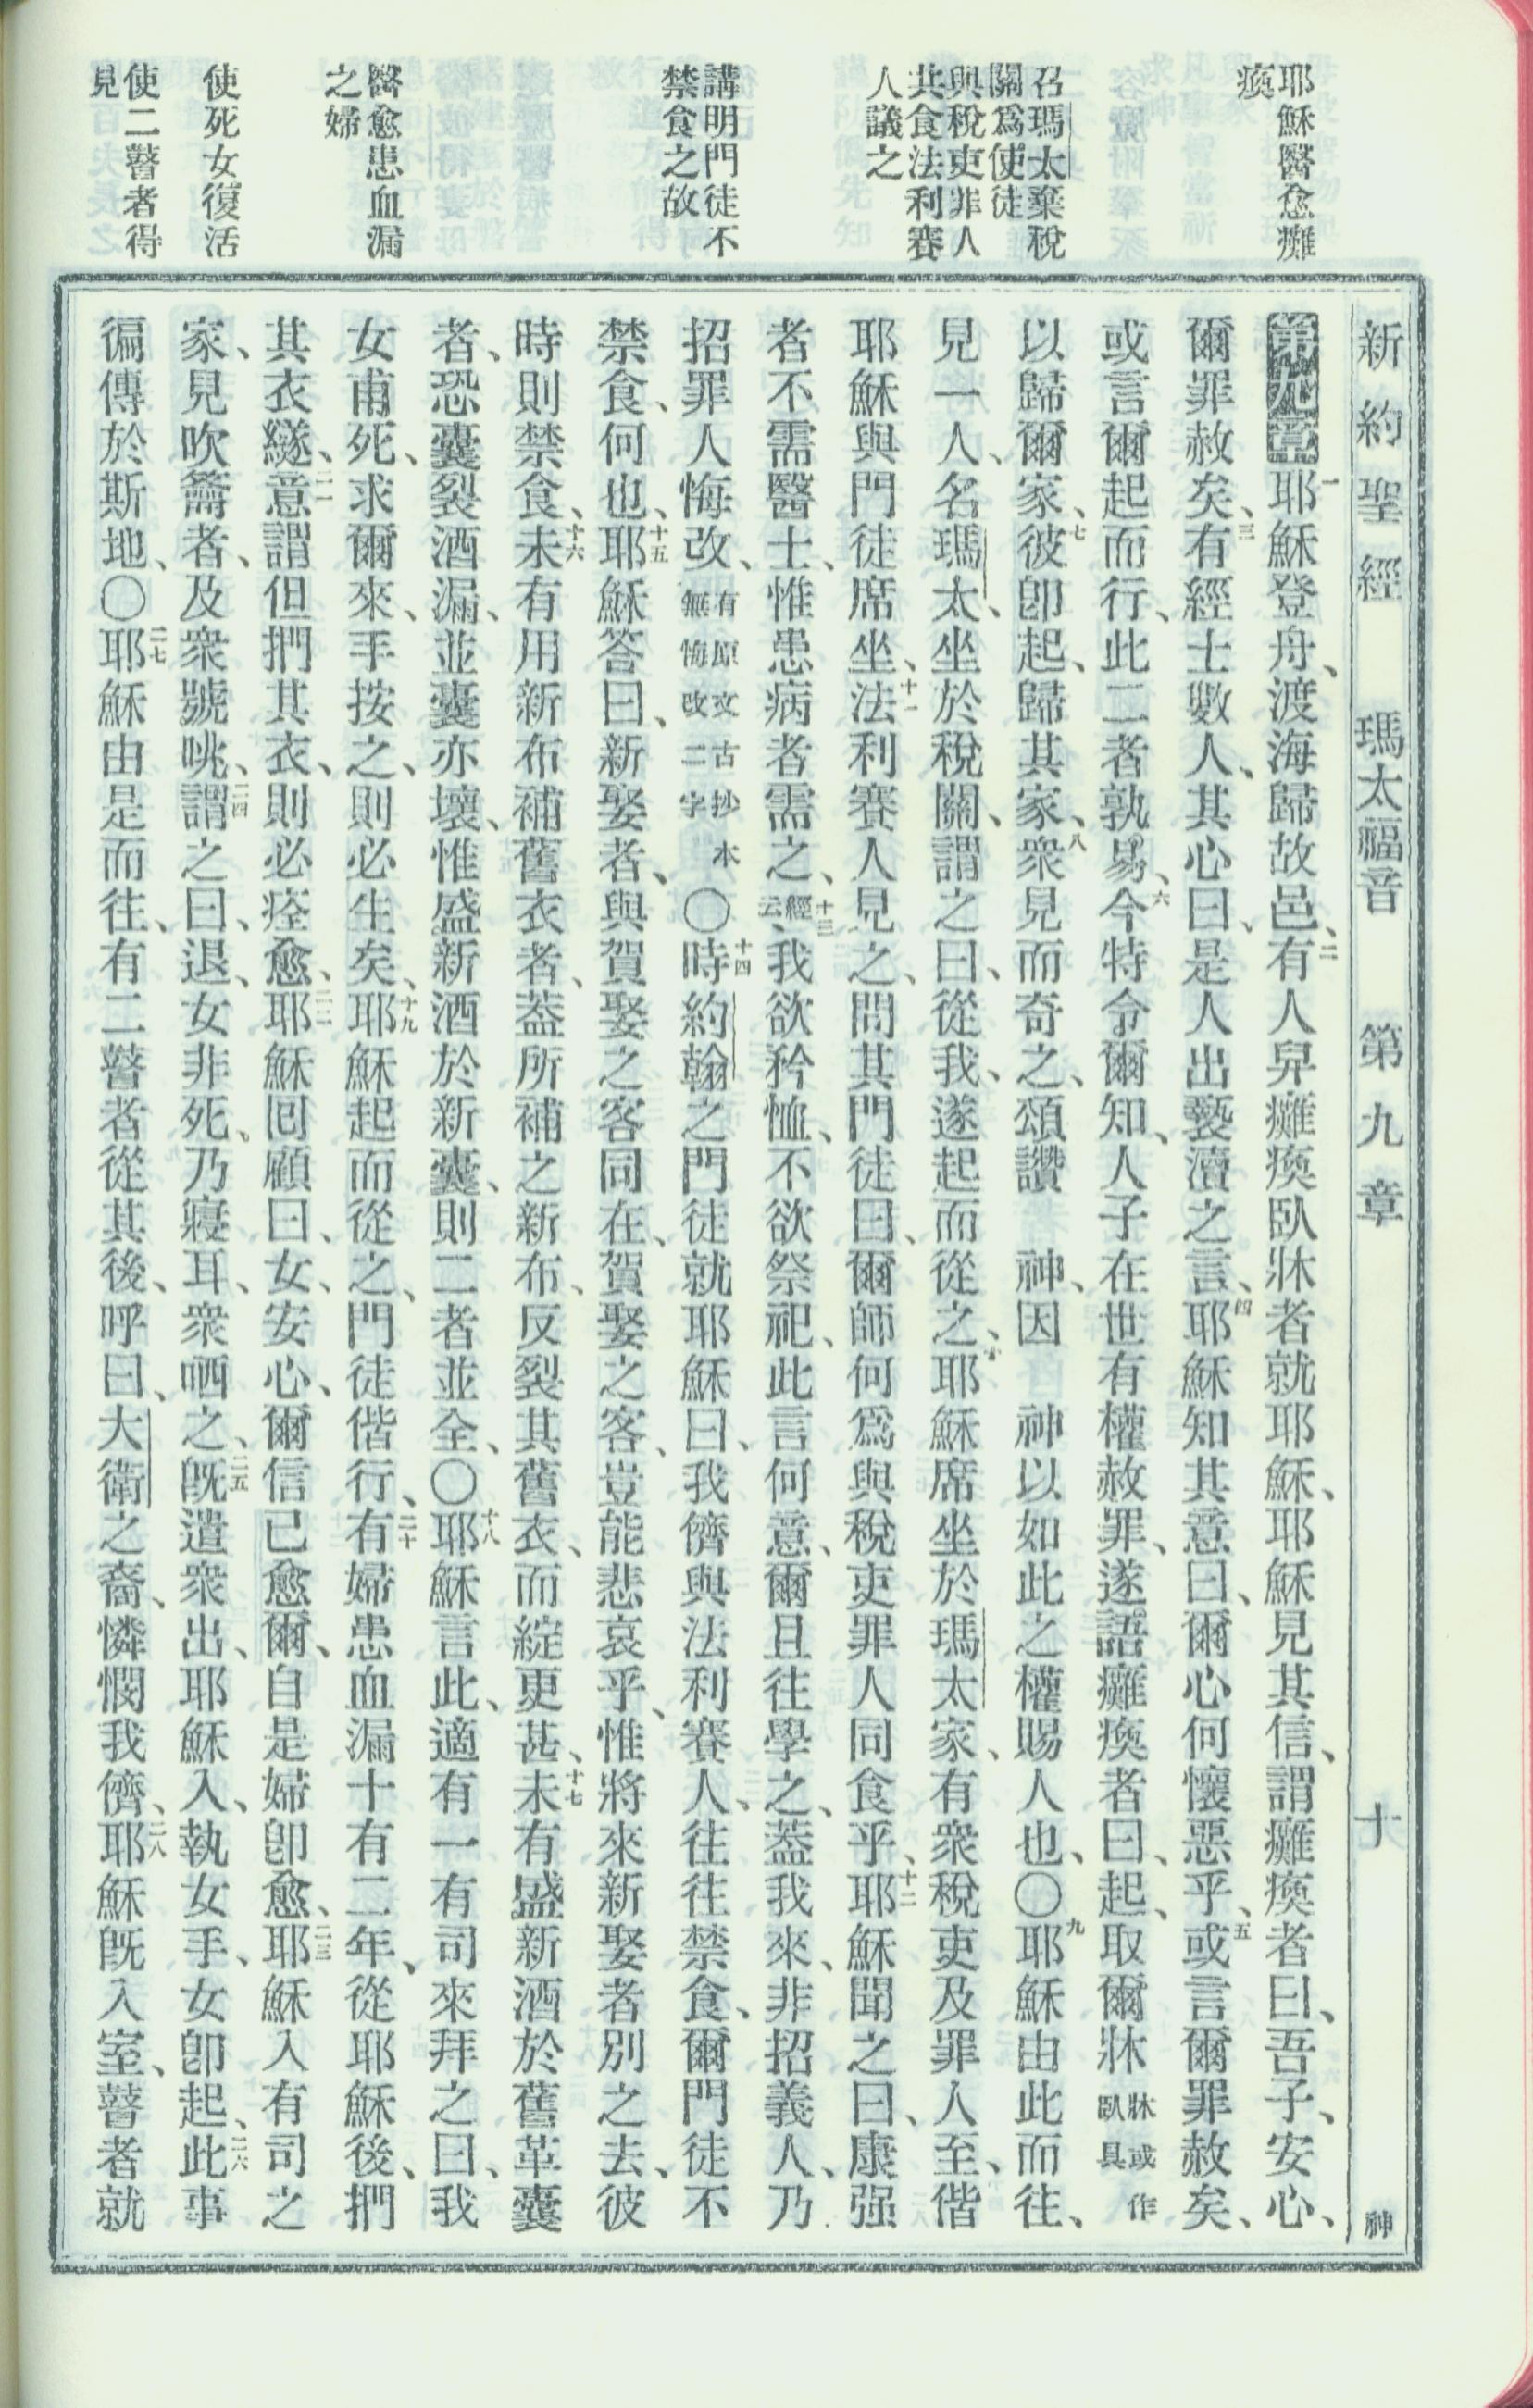 新約聖經　瑪太福音　第九章　十　神
耶穌醫愈癱
瘓
召瑪太棄稅
關爲使徒
與稅吏罪人
共食法利賽
人議之
講明門徒不
禁食之故
醫愈患血漏
之婦
使死女復活
使二瞽者得
見
第九章一耶穌登舟、渡海歸故邑、二有人舁癱瘓臥牀者就耶穌、耶穌見其信、謂癱瘓者曰、吾子、安心、
爾罪赦矣、三有經士數人、其心曰、是人出褻瀆之言、四耶穌知其意曰、爾心何懷惡乎、五或言爾罪赦矣、
或言爾起而行、此二者孰易、六今特令爾知、人子在世有權赦罪、遂語癱瘓者曰、起、取爾牀牀或作臥具
以歸爾家、七彼卽起、歸其家、八衆見而奇之、頌讚　神、因　神以如此之權賜人也、〇九耶穌由此而往、
見一人、名瑪太、坐於稅關、謂之曰、從我、遂起而從之、十耶穌席坐於瑪太家、有衆稅吏及罪人至、偕
耶穌與門徒席坐、十一法利賽人見之、問其門徒曰、爾師何爲與稅吏罪人同食乎、十二耶穌聞之曰、康强
者不需醫士、惟患病者需之、十三經云、我欲矜恤、不欲祭祀、此言何意、爾且往學之、蓋我來、非招義人、乃
招罪人悔改、有原文古抄本無悔改二字〇十四時約翰之門徒就耶穌曰、我儕與法利賽人、往往禁食、爾門徒不
禁食、何也、十五耶穌答曰、新娶者、與賀娶之客同在、賀娶之客、豈能悲哀乎、惟將來新娶者別之去、彼
時則禁食、十六未有用新布補舊衣者、蓋所補之新布、反裂其舊衣、而綻更甚、十七未有盛新酒於舊革囊
者、恐囊裂酒漏、並囊亦壞、惟盛新酒於新囊、則二者並全、〇十八耶穌言此、適有一有司來拜之曰、我
女甫死、求爾來、手按之、則必生矣、十九耶穌起而從之、門徒偕行、二十有婦患血漏十有二年、從耶穌後、捫
其衣繸、二一意謂但捫其衣、則必痊愈、二二耶穌囘顧曰、女、安心、爾信已愈爾、自是婦卽愈、二三耶穌入有司之
家、見吹籥者、及衆號咷、二四謂之曰、退、女非死、乃寢耳、衆哂之、二五旣遣衆出、耶穌入、執女手、女卽起、二六此事
徧傳於斯地、〇二七耶穌由是而往、有二瞽者從其後、呼曰、大衛之裔、憐憫我儕、二八耶穌旣入室、瞽者就